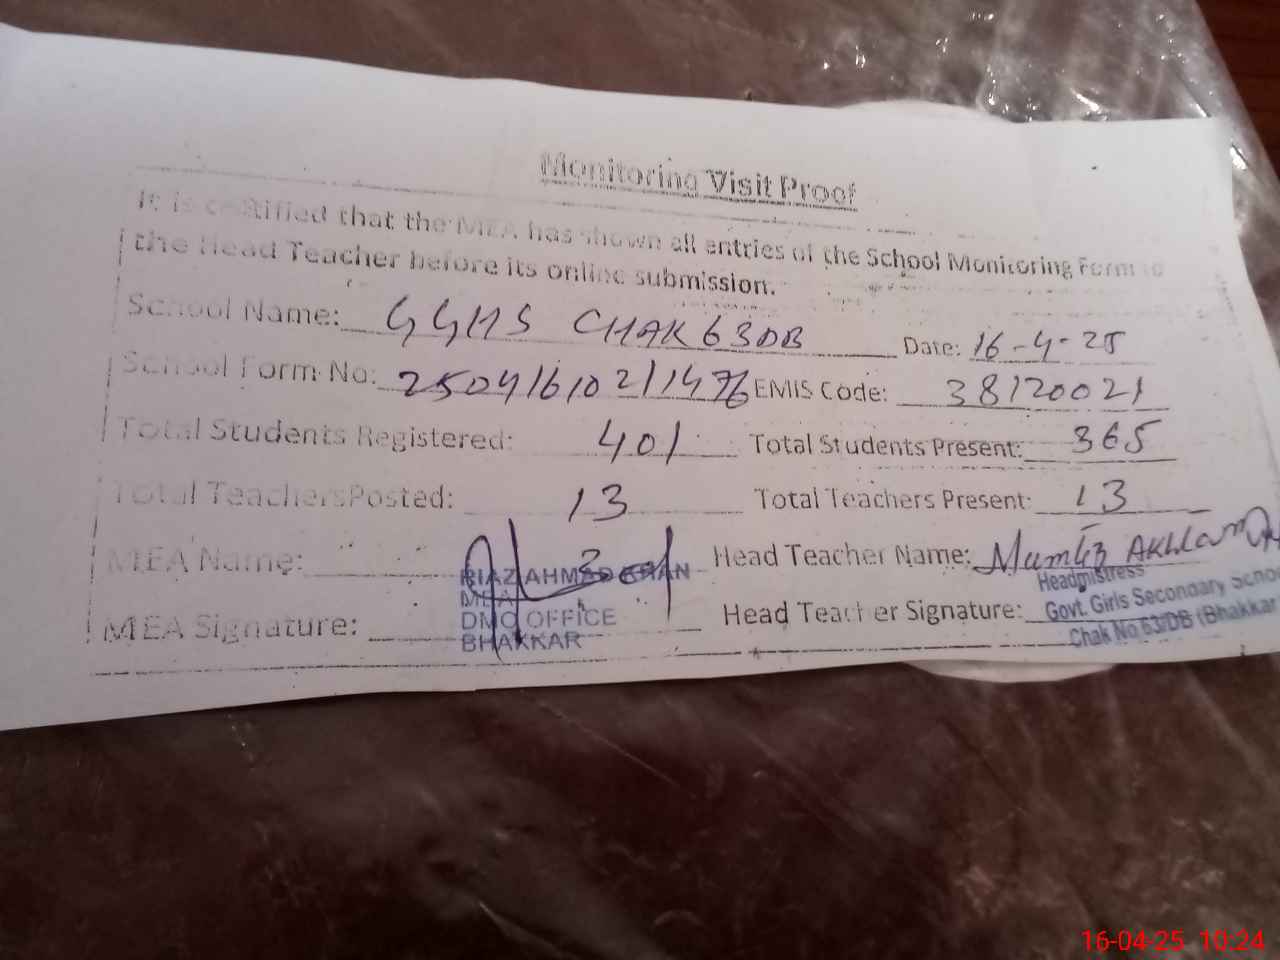 Monitoring Visit Proof
It is certified that the MEA has shown all entries of the School Monitoring Form to
the Head Teacher before its online submission.
School Name: GGHS CHAK 63DB Date: 16-4-25
School Form No: 25041610211476 EMIS Code: 38120021
Total Students Registered: 401 Total Students Present: 365
Total Teachers Posted: 13 Total Teachers Present: 13
MEA Name: RIAZ AHMAD KHAN Head Teacher Name: Mumtaz
MEA Headmistress
MEA Signature: DMO OFFICE Head Teacher Signature: Govt. Girls Secondary Schoo
BHAKKAR Chak No.63/DB (Bhakkar
16-04-25 10:24